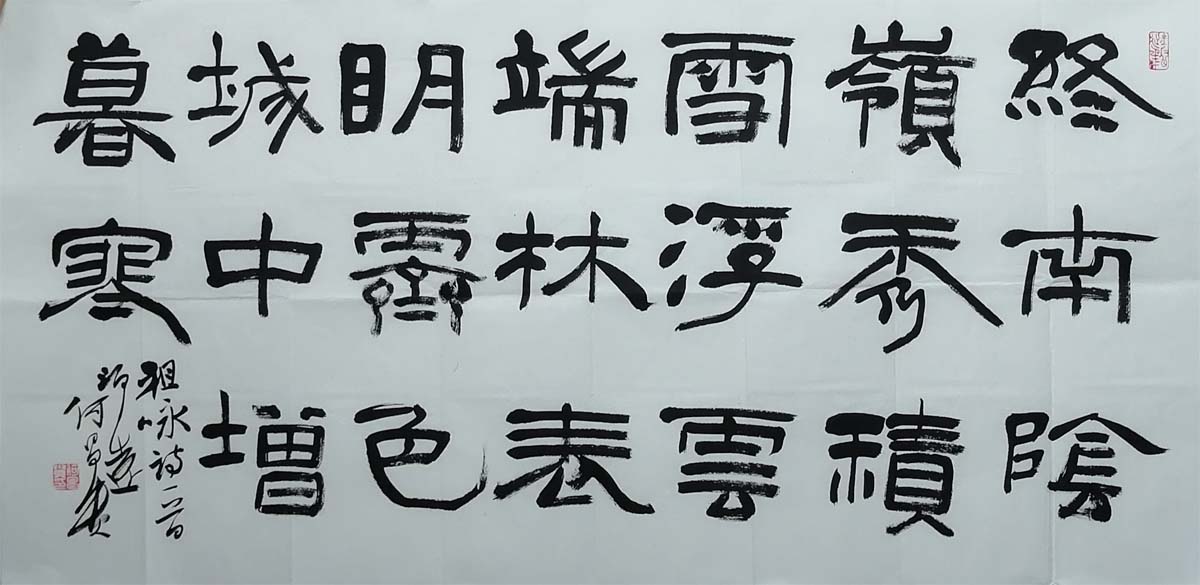 終南陰
嶺秀積
雪浮雲
端林表
明霽色
城中增
暮寒
祖咏詩一首